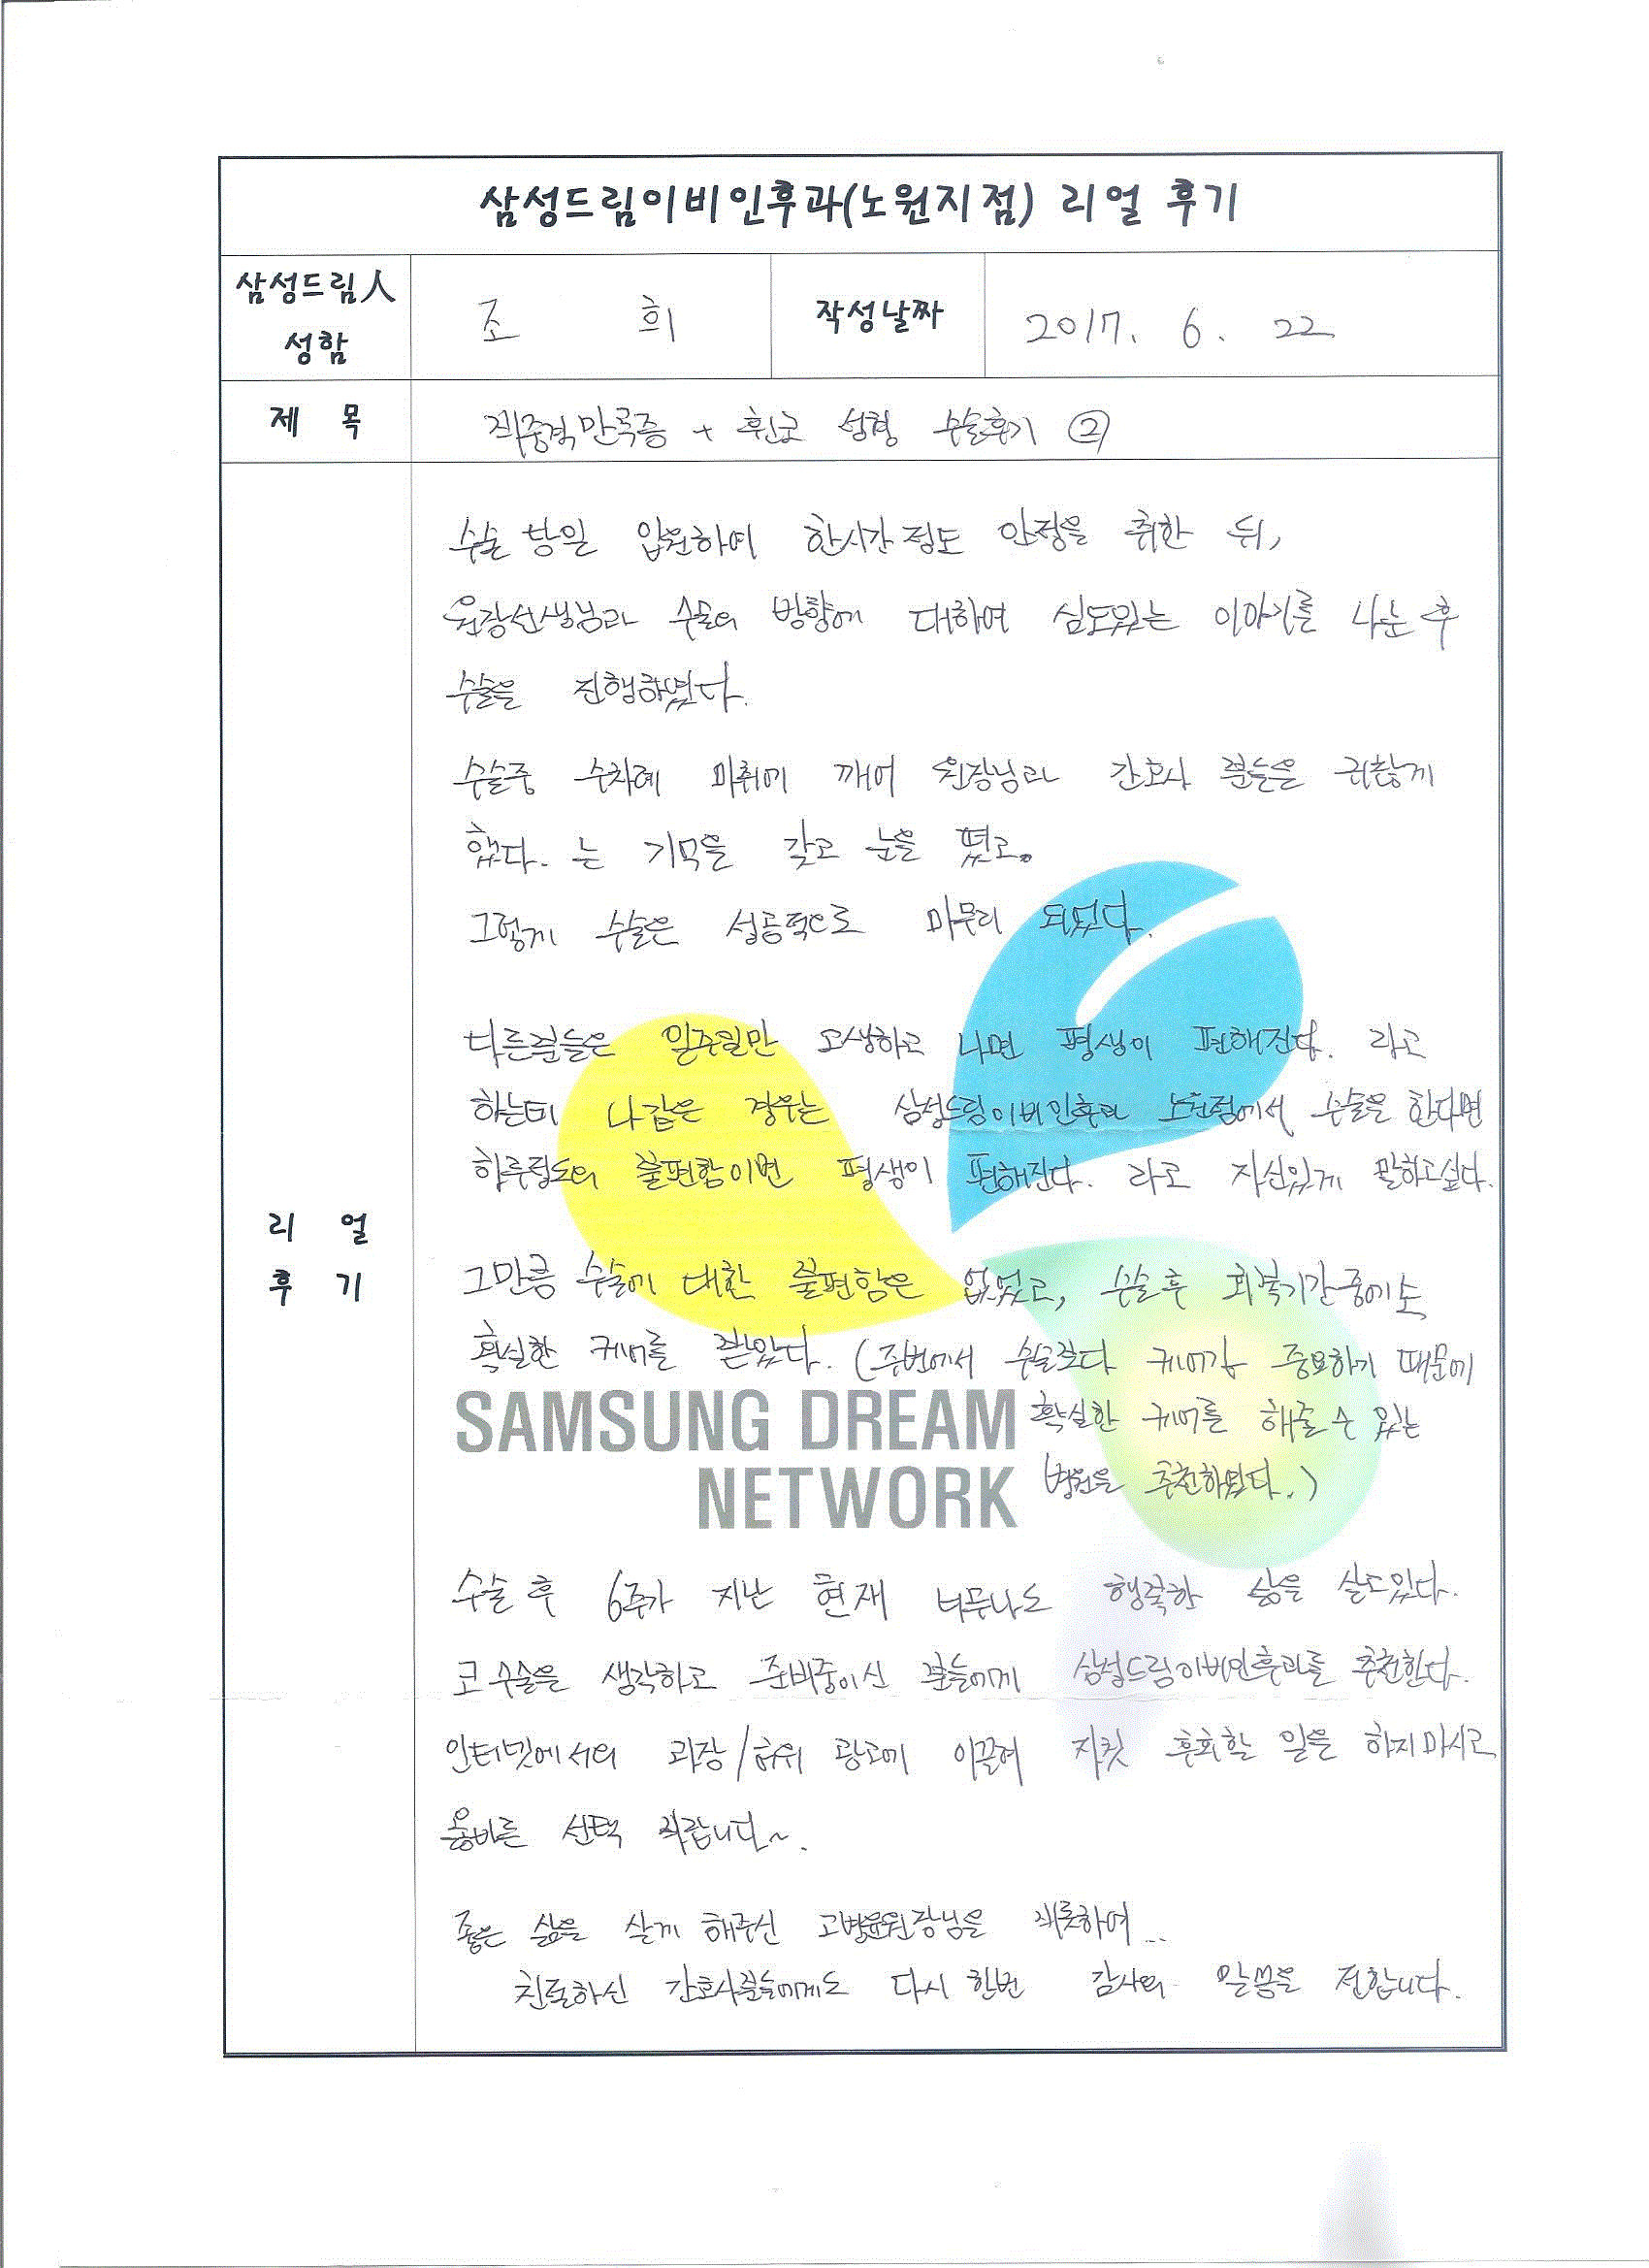 삼성드림이비인후과(노원지점) 리얼 후기
삼성드림人
성함
조 희
작성날짜
2017. 6. 22
제 목
비중격만곡증 + 휜코 성형 수술후기 ②
리 얼
후 기
수술 당일 입원하여 한시간 정도 안정을 취한 뒤,
원장선생님과 수술의 방향에 대하여 심도있는 이야기를 나눈 후
수술을 진행하였다.
수술중 수차례 마취에 깨어 원장님과 간호사 분들을 귀찮게
했다. 는 기억을 갖고 눈을 떴고.
그렇게 수술은 성공적으로 마무리 되었다.
다른분들은 일주일만 고생하고 나면 평생이 편해진다. 라고
하는데 나같은 경우는 삼성드림이비인후과 노원점에서 수술을 한다면
하루정도의 불편함이면 평생이 편해진다. 라고 자신있게 말하고싶다.
그만큼 수술에 대한 불편함은 없었고, 수술 후 회복기간중에도
확실한 케어를 받았다. (주변에서 수술보다 케어가 중요하기 때문에
확실한 케어를 해줄 수 있는
병원을 추천하였다.)
SAMSUNG DREAM
NETWORK
수술 후 6주가 지난 현재 너무나도 행복한 삶을 살고있다.
코 수술을 생각하고 준비중이신 분들에게 삼성드림이비인후과를 추천한다.
인터넷에서의 과장/허위 광고에 이끌려 자칫 후회할 일을 하지마시고
올바른 선택 바랍니다~.
좋은 삶을 살게 해주신 고범윤원장님을 비롯하여...
친절하신 간호사분들에게도 다시 한번 감사의 말씀을 전합니다.